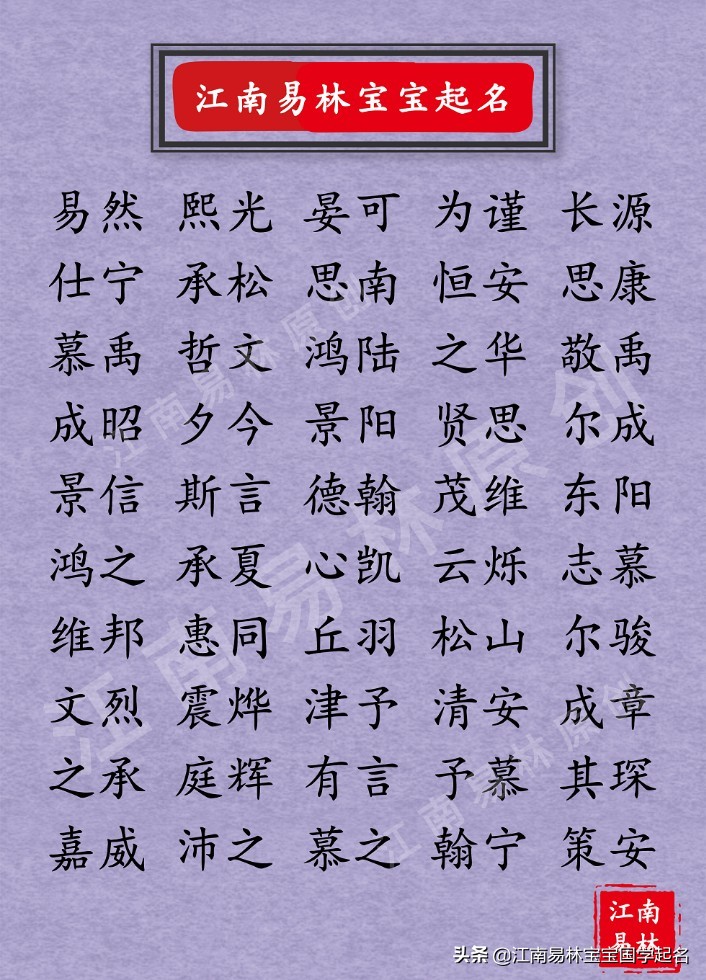 江南易林宝宝起名
易然 熙光 晏可 为谨 长源
仕宁 承松 思南 恒安 思康
慕禹 哲文 鸿陆 之华 敬禹
成昭 夕今 景阳 贤思 尔成
景信 斯言 德翰 茂维 东阳
鸿之 承夏 心凯 云烁 志慕
维邦 惠同 丘羽 松山 尔骏
文烈 震烨 津予 清安 成章
之承 庭辉 有言 予慕 其琛
嘉威 沛之 慕之 翰宁 策安
江南易林原创
江南易林原创
江南易林原创
江南
易林
头条 @江南易林宝宝国学起名